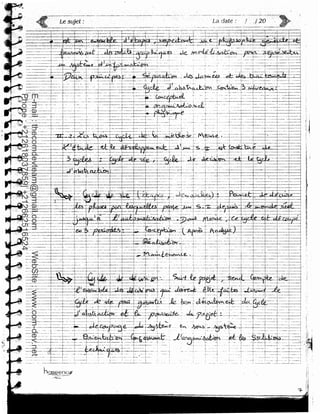 Le sujet :
La date : / /20
est un ensemble d'étapes, respectant une philosophie générale et
fournissant des outils graphiques de modélisation pour représenter
un système d'information
Deux principes : Séparation des données et des traitements
Cycle d'abstraction contien 3 niveaux :
conceptuel
organisationnel
physique
II. 2. Les trois cycle de la méthode Merise :
L'étude et le développement d'un S.I est constitué de
3 cycles : Cycle de vie, Cycle de décision et le cycle
d'abstraction.
Cycle de vie : Permet de décrire
les phases par lesquelles passe un S.I depuis le monde réel
jusqu'à l'automatisation, Dans Merise, ce cycle est découpé
en 3 périodes : - Conception (Après Analyse)
- Réalisation.
- Maintenance.
Cycle de décision : Suit le projet, tenu compte de
l'ensemble des décisions qui doivent être faites durant le
cycle de vie pour garantir le bon déroulement du cycle
d'abstraction et la poursuite du projet :
- découpage du système en sous-système.
- Orientation concernant l'organisation et les solutions
techniques
E-mail : thecomdevteam@gmail.com
WebSite : www.com-dev.net